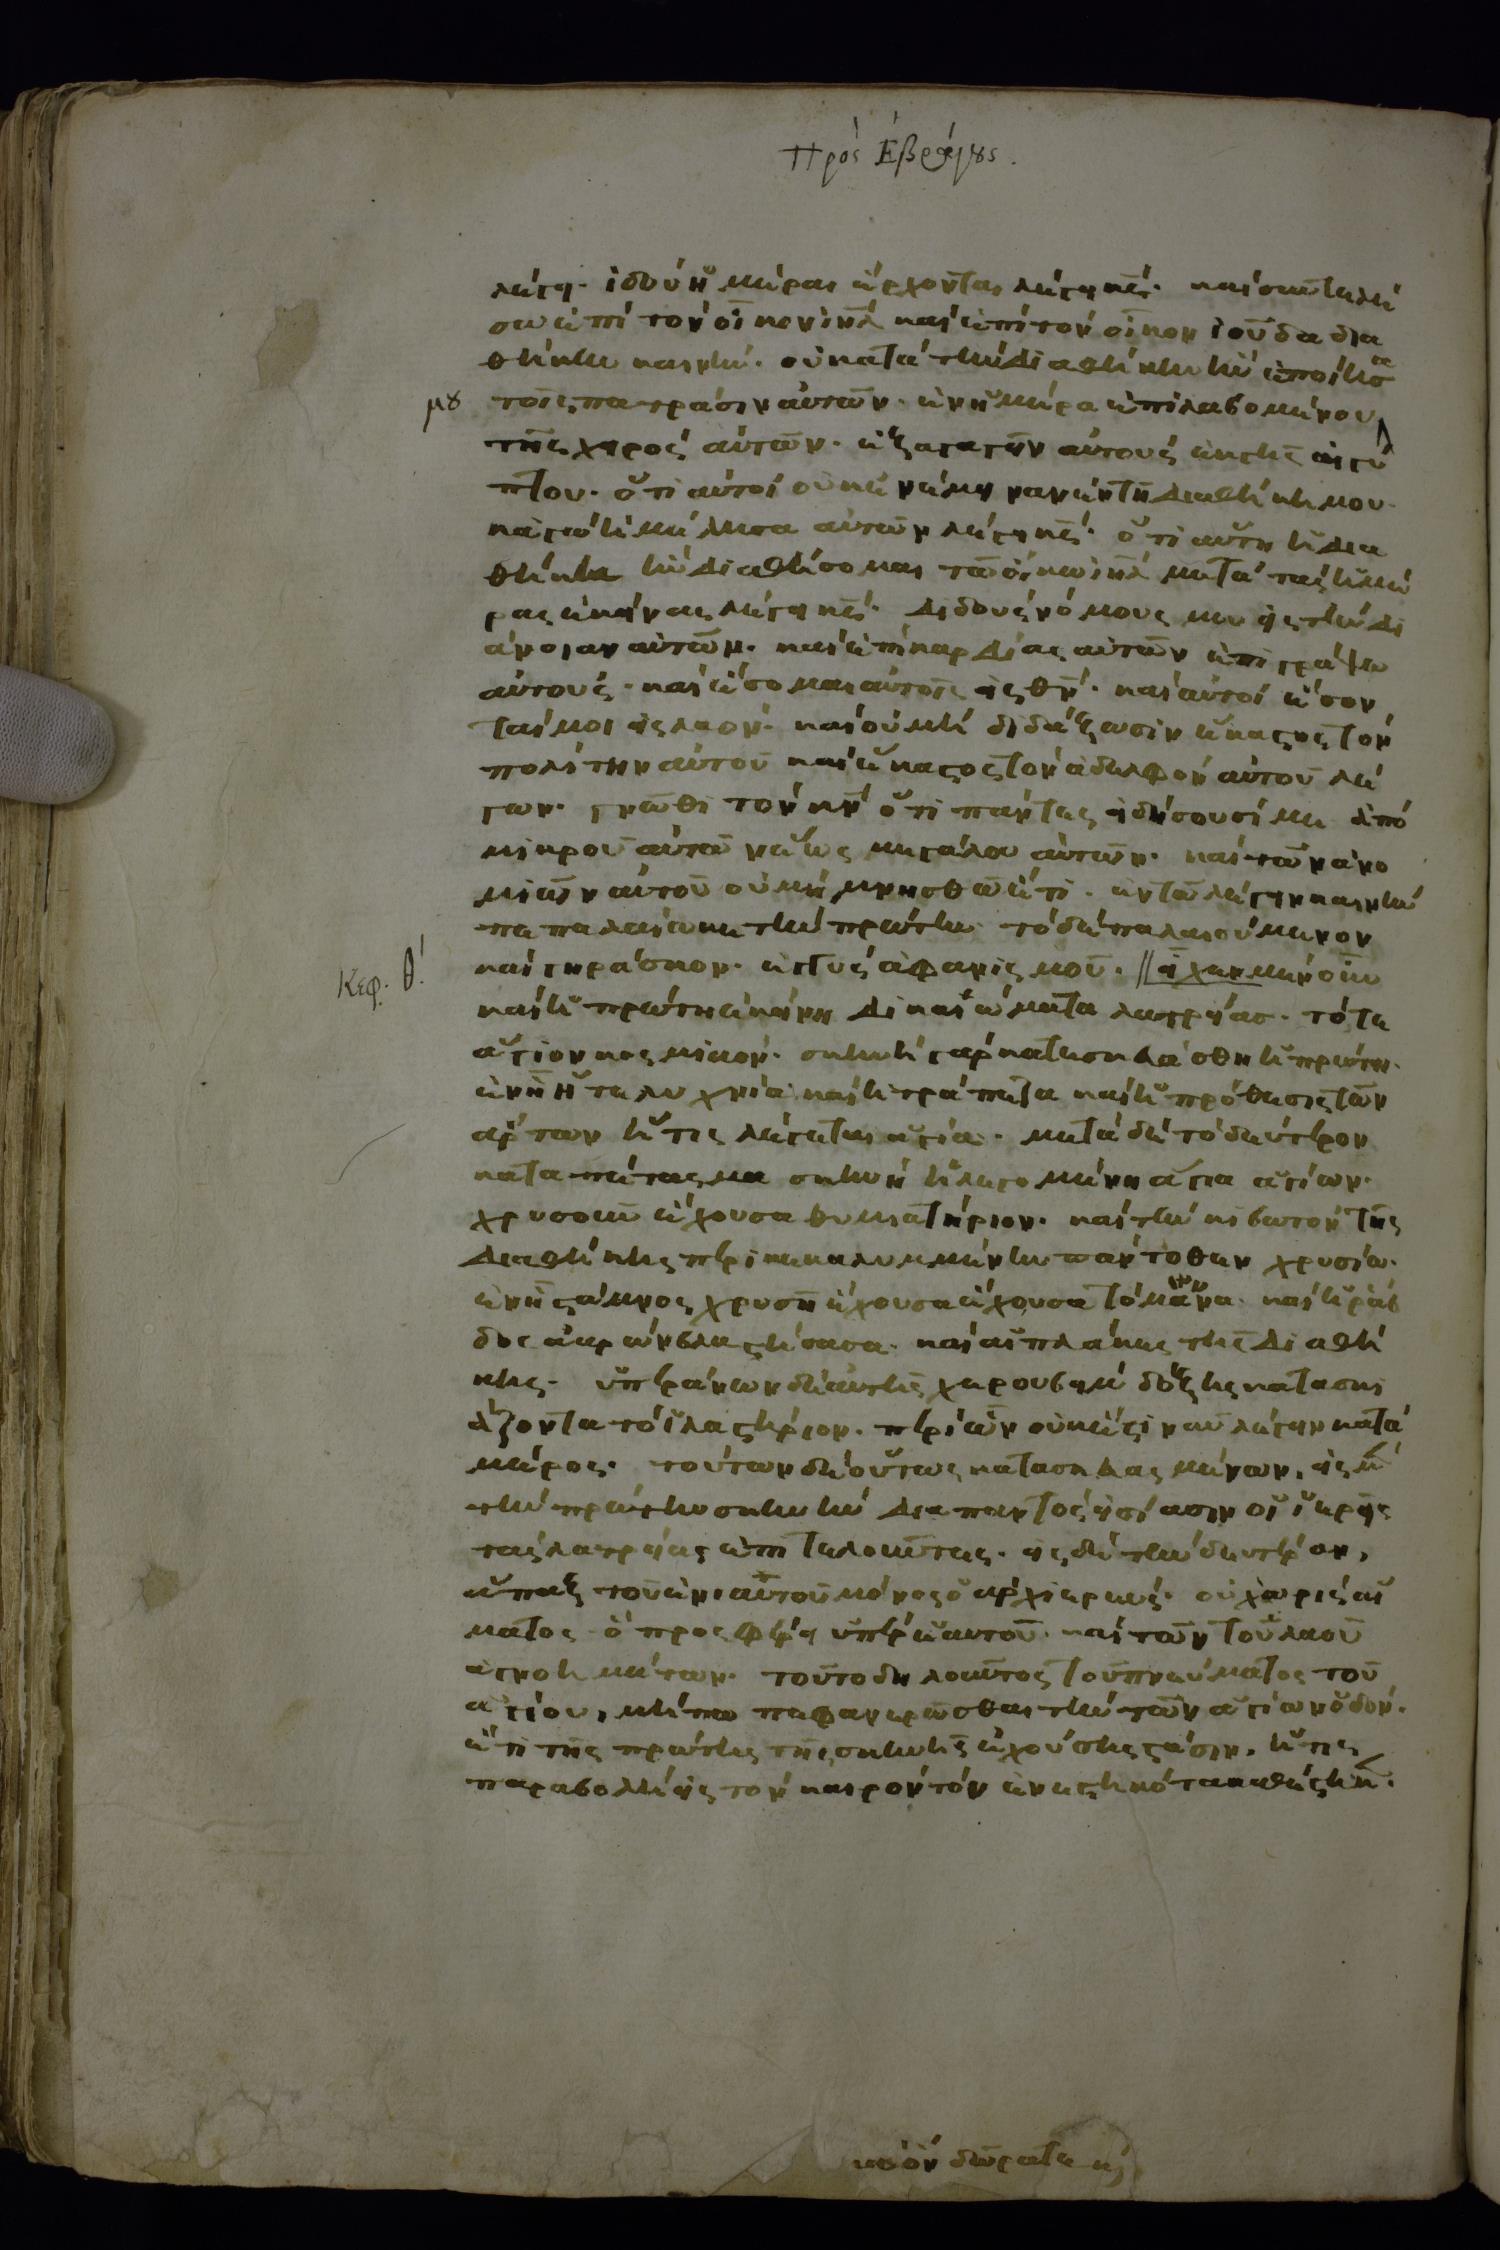 Πρὸς Ἑβραίους.
λέγει· ἰδοὺ ἡμέραι ἔρχονται λέγει κς· καὶ συντελέ
σω ἐπὶ τὸν οἶκον ιηλ καὶ ἐπὶ τὸν οἶκον ἰούδα δια
θήκην καινήν· οὐ κατὰ τὴν διαθήκην ἣν ἐποίησα
μου
τοῖς πατράσιν αὐτῶν· ἐν ἡμέρα ἐπιλαβομένου
τῆς χειρὸς αὐτῶν· ἐξαγαγεῖν αὐτοὺς ἐκ γῆς αἰγύ
πτου· ὅτι αὐτοὶ οὐκ ἐνέμειναν ἐν τῇ διαθήκη μου·
κἀγὼ ἠμέλησα αὐτῶν λέγει κς· ὅτι αὕτη ἡ δια
θήκη ἣν διαθήσομαι τῶ οἴκω ιηλ μετὰ τὰς ἡμέ
ρας ἐκείνας λέγει κς· διδοὺς νόμους μου εἰς τὴν δι
άνοιαν αὐτῶν· καὶ ἐπὶ καρδίας αὐτῶν ἐπιγράψω
αὐτούς· καὶ ἔσομαι αὐτοῖς εἰς θν· καὶ αὐτοὶ ἔσον
ταί μοι εἰς λαόν· καὶ οὐ μὴ διδάξωσιν ἕκαστος τὸν
πολίτην αὐτοῦ καὶ ἕκαστος τὸν ἀδελφὸν αὐτοῦ λέ
γων· γνῶθι τὸν κν ὅτι πάντες εἰδήσουσί με ἀπὸ
μικροῦ αὐτῶν ἕως μεγάλου αὐτῶν· καὶ τῶν ἀνο
μιῶν αὐτοῦ οὐ μὴ μνησθῶ ἔτι· ἐν τῶ λέγειν καινὴν
πεπαλαίωκε τὴν πρώτην· τὸ δὲ παλαιούμενον
Κεφ. θ'.
καὶ γηράσκον· ἐγγὺς ἀφανισμοῦ· // εἶχεν μὲν οὖν
καὶ ἡ πρώτη ἐκείνη δικαιώματα λατρείας· τό τε
ἅγιον κοσμικόν· σκηνὴ γὰρ κατεσκευάσθη ἡ πρώτη·
ἐν ᾗ ἥ τε λυχνία καὶ ἡ τράπεζα καὶ ἡ πρόθεσις τῶν
ἄρτων ἥτις λέγεται ἁγία· μετὰ δὲ τὸ δεύτερον
καταπέτασμα σκηνὴ ἡ λεγομένη ἅγια ἁγίων·
χρυσοῦν ἔχουσα θυμιατήριον· καὶ τὴν κιβωτὸν τῆς
διαθήκης περικεκαλυμμένην πάντοθεν χρυσίω·
ἐν ᾗ στάμνος χρυσῆ ἔχουσα ἔχουσα τὸ μάννα· καὶ ἡ ῥάβ
δος ἀαρὼν βλαστήσασα· καὶ αἱ πλάκες τῆς διαθή
κης· ὑπεράνων δὲ αὐτῆς χερουβεὶμ δόξης κατασκι
άζοντα τὸ ἱλαστήριον· περὶ ὧν οὐκ ἔστι νῦν λέγειν κατὰ
μέρος· τούτων δὲ οὕτως κατασκευασμένων, εἰς μὲν
τὴν πρώτην σκηνὴν διαπαντὸς εἰσίασιν οἱ ἱερεῖς
τὰς λατρείας ἐπιτελοῦντες· εἰς δὲ τὴν δευτέραν,
ἅπαξ τοῦ ἐνιαυτοῦ μόνος ὁ ἀρχιερεύς· οὐ χωρὶς αἵ
ματος· ὃ προσφέρει ὑπὲρ ἑαυτοῦ καὶ τῶν τοῦ λαοῦ
ἀγνοημάτων· τοῦτο δηλοῦντος τοῦ πνεύματος τοῦ
ἁγίου, μήπω πεφανερῶσθαι τὴν τῶν ἁγίων ὁδόν·
ἔτι τῆς πρώτης τῆς σκηνῆς ἐχούσης στάσιν, ἥτις
παραβολὴ εἰς τὸν καιρὸν τὸν ἐνεστηκότα καθεστήκει·
καθ' ὃν δῶρά τε καὶ